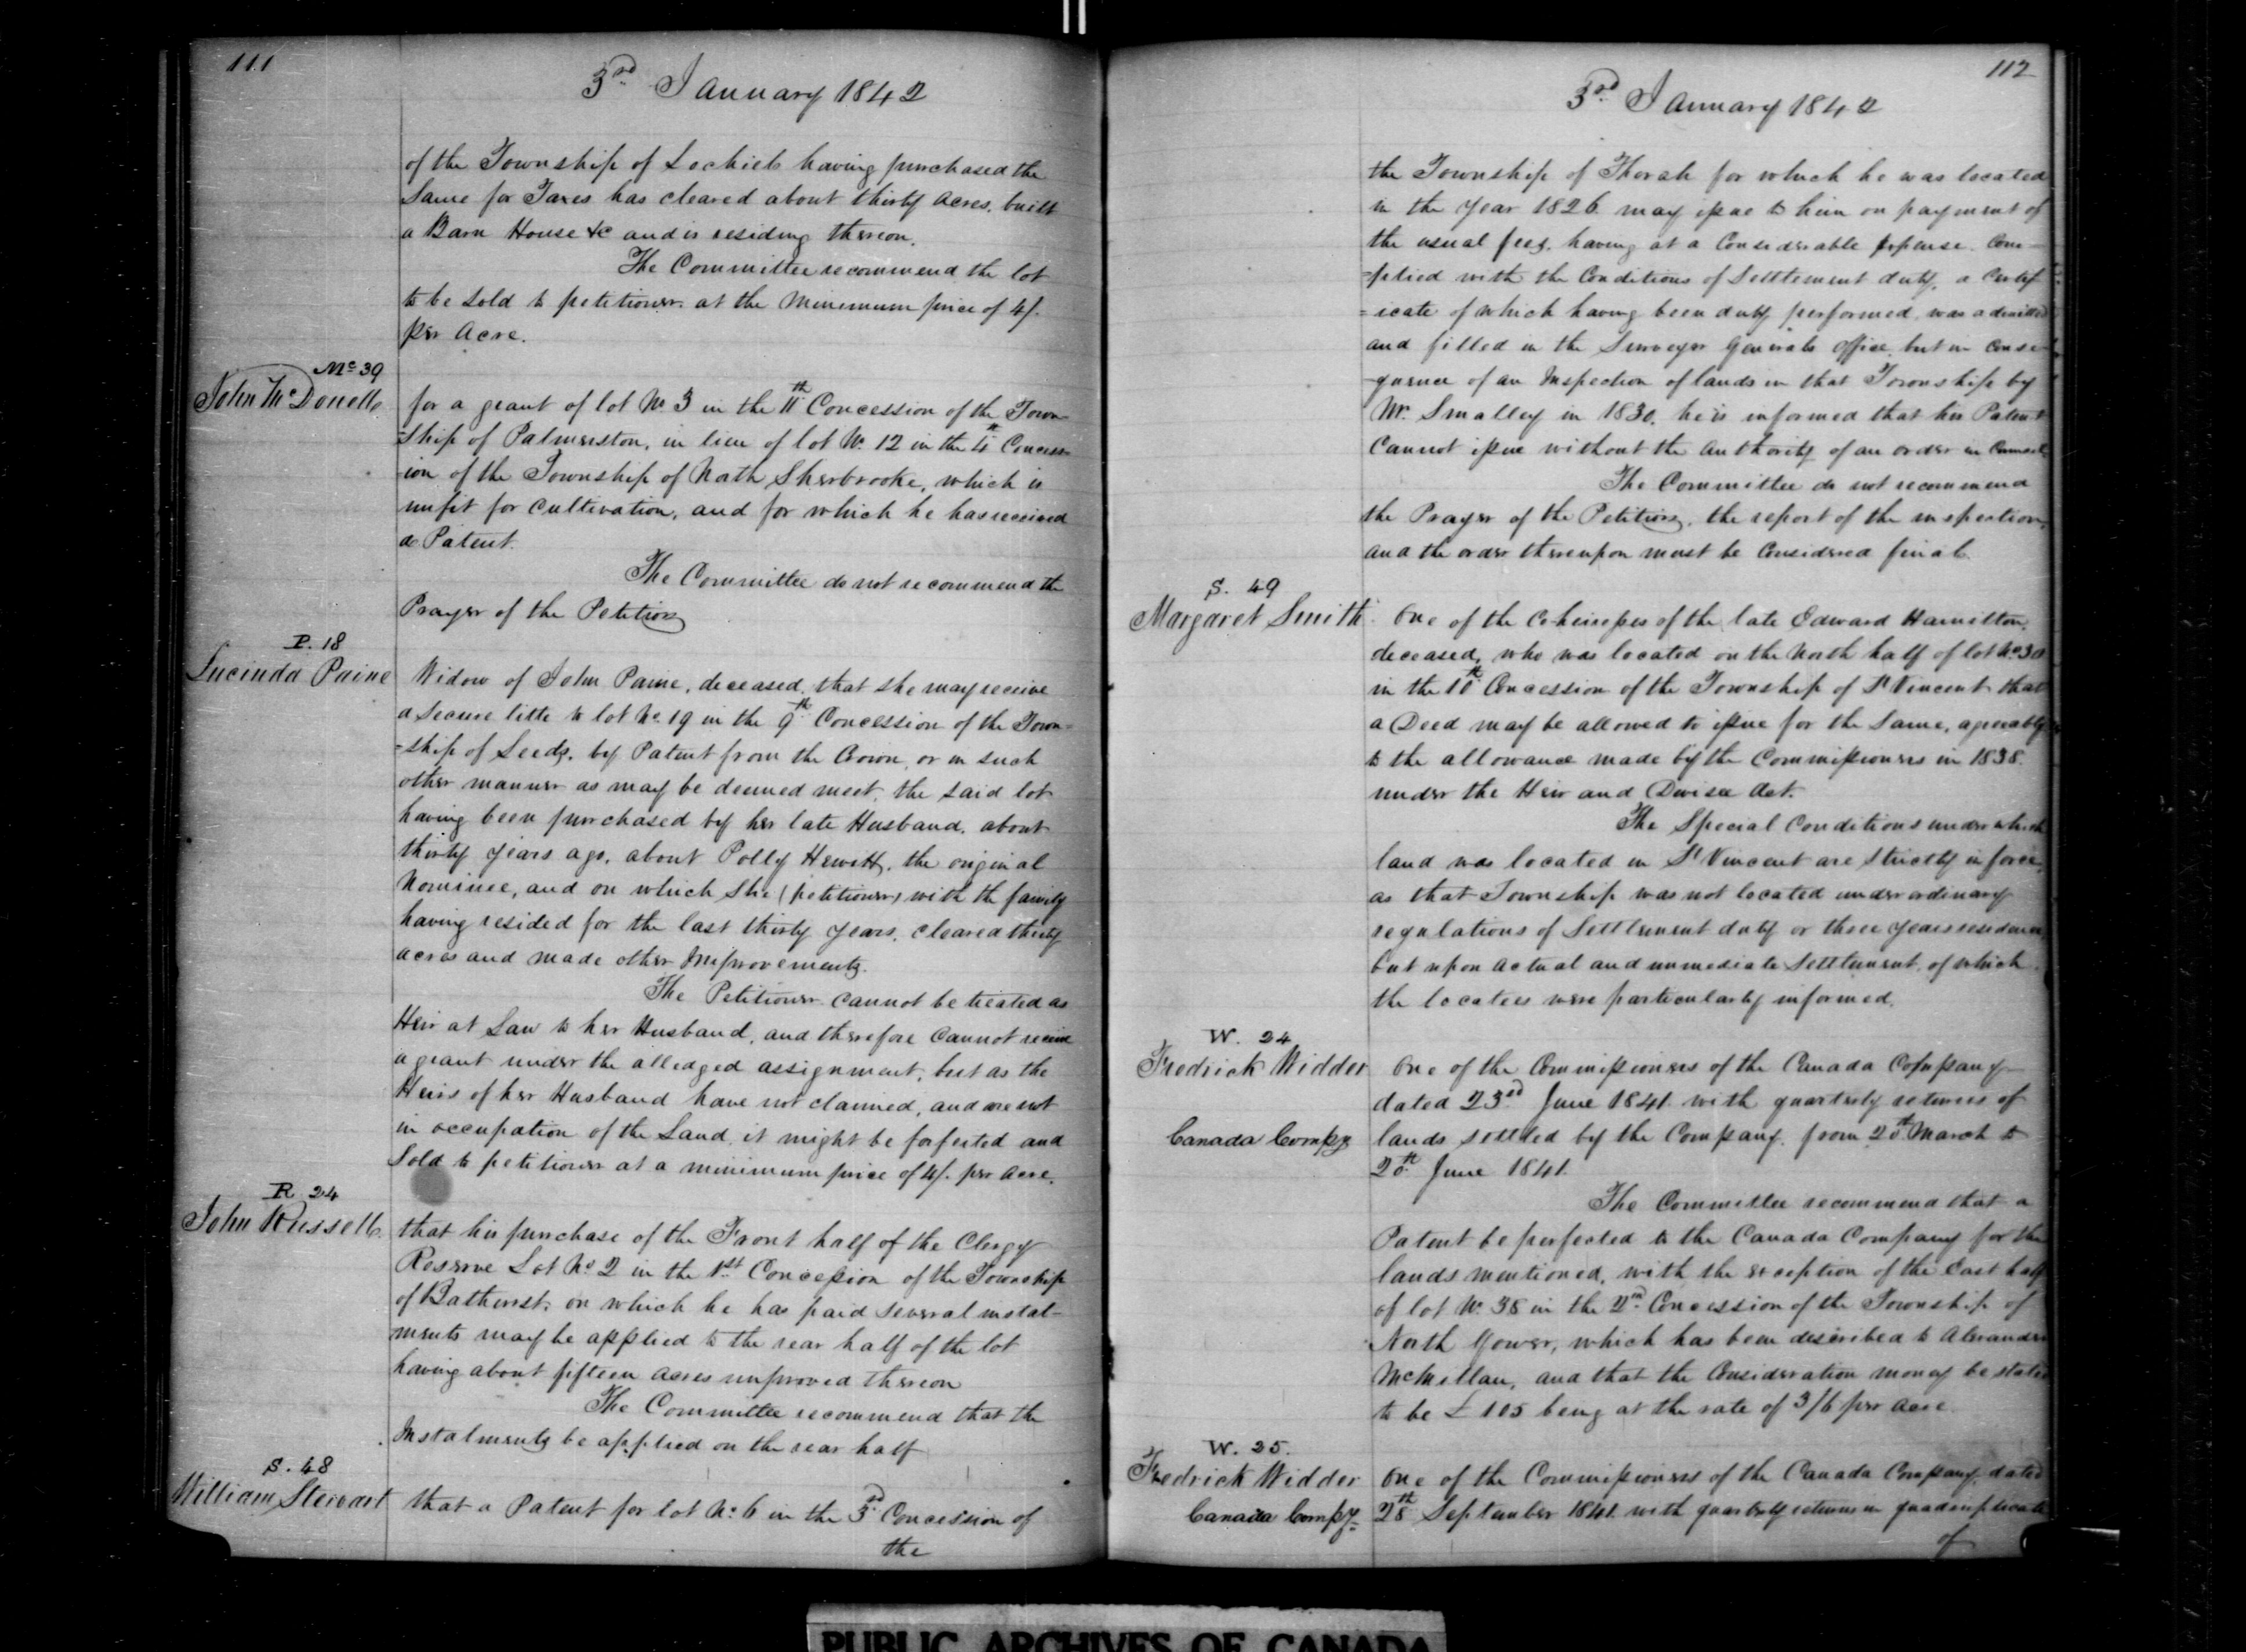 111
3rd January 1842
of the Township of Lochiel having purchased the
Same for Taxes has cleared about thirty acres, built
a Barn House &c and is residing thereon.
The Committee recommend the lot
to be Sold to petitioner at the Minimum price of 4/.
per Acre.
Mc 39
John McDonell
for a grant of lot No 3 in the 11th Concession of the Town-
=ship of Palmerston, in lieu of lot No. 12 in the 4th Concess-
-ion of the Township of North Sherbrooke, which is
unfit for Cultivation, and for which he has received
a Patent.
The Committee do not recommend the
Prayer of the Petition
P. 18
Lucinda Paine
Widow of John Paine, deceased, that she may receive
a Secure title to lot No. 19 in the 9th Concession of the Town-
=ship of Leeds, by Patent from the Crown, or in such
other manner as may be deemed meet, the said lot
having been purchased by her late Husband, about
thirty years ago, about Polly Hewitt, the original
Nominee, and on which She (petitioner) with the family
having resided for the last thirty years, cleared thirty
acres and made other Improvements.
The Petitioner cannot be treated as
Heir at Law to her Husband, and therefore Cannot receive
a grant under the alledged assignment, but as the
Heirs of her Husband have not claimed, and are not
in occupation of the Land, it might be forfeited and
Sold to petitioner at a minimum price of 4/. per Acre.
R 24
John Russell
that his purchase of the Front half of the Clergy
Reserve Lot No 2 in the 1st Concession of the Township
of Bathurst, on which he has paid several instal-
ments may be applied to the rear half of the lot
having about fifteen acres improved thereon
The Committee recommend that the
Instalments be applied on the rear half
S. 48
William Stewart
that a Patent for lot No. 6 in the 3rd Concession of
the
112
3rd January 1842
the Township of Thorah for which he was located
in the year 1826 may issue to him on payment of
the usual fees, having at a Considerable Expense Com-
=plied with the Conditions of Settlement duty, a Certif
=icate of which having been duly performed was admitted
and filled in the Surveyor Generals Office, but in Conse-
-quence of an Inspection of lands in that Township by
Mr. Smalley in 1830, he is informed that his Patent
Cannot issue without the Authority of an order in Council.
The Committee do not recommend
the Prayer of the Petition, the report of the inspection,
and the order thereupon must be Considered final.
S. 49
Margaret Smith
One of the Co-heiresses of the late Edward Hamilton,
deceased, who was located on the North half of lot No 30
in the 10th Concession of the Township of St Vincent that
a Deed may be allowed to issue for the Same, agreeably
to the allowance made by the Commissioners in 1838.
under the Heir and Devisee Act.
The Special Conditions under which
land was located in St Vincent are strictly in force,
as that Township was not located under ordinary
regulations of Settlement duty or three years residence,
but upon actual and immediate Settlement, of which
the locatees were particularly informed.
W. 24
Fredrick Widder
Canada Compy
One of the Commissioners of the Canada Company
dated 23rd June 1841 with quarterly returns of
lands settled by the Company from 20th March to
20th June 1841.
The Committee recommend that a
Patent be perfected to the Canada Company for the
lands mentioned, with the exception of the East half
of lot No. 38 in the 2nd Concession of the Township of
North Gower, which has been described to Alexander
McMillan, and that the Consideration money be stated
to be £105 being at the rate of 3/6 per Acre
W. 25.
Fredrick Widder
Canada Compy.
One of the Commissioners of the Canada Company, dated
28th September 1841 with quarterly returns in quadruplicate
of
PUBLIC ARCHIVES OF CANADA